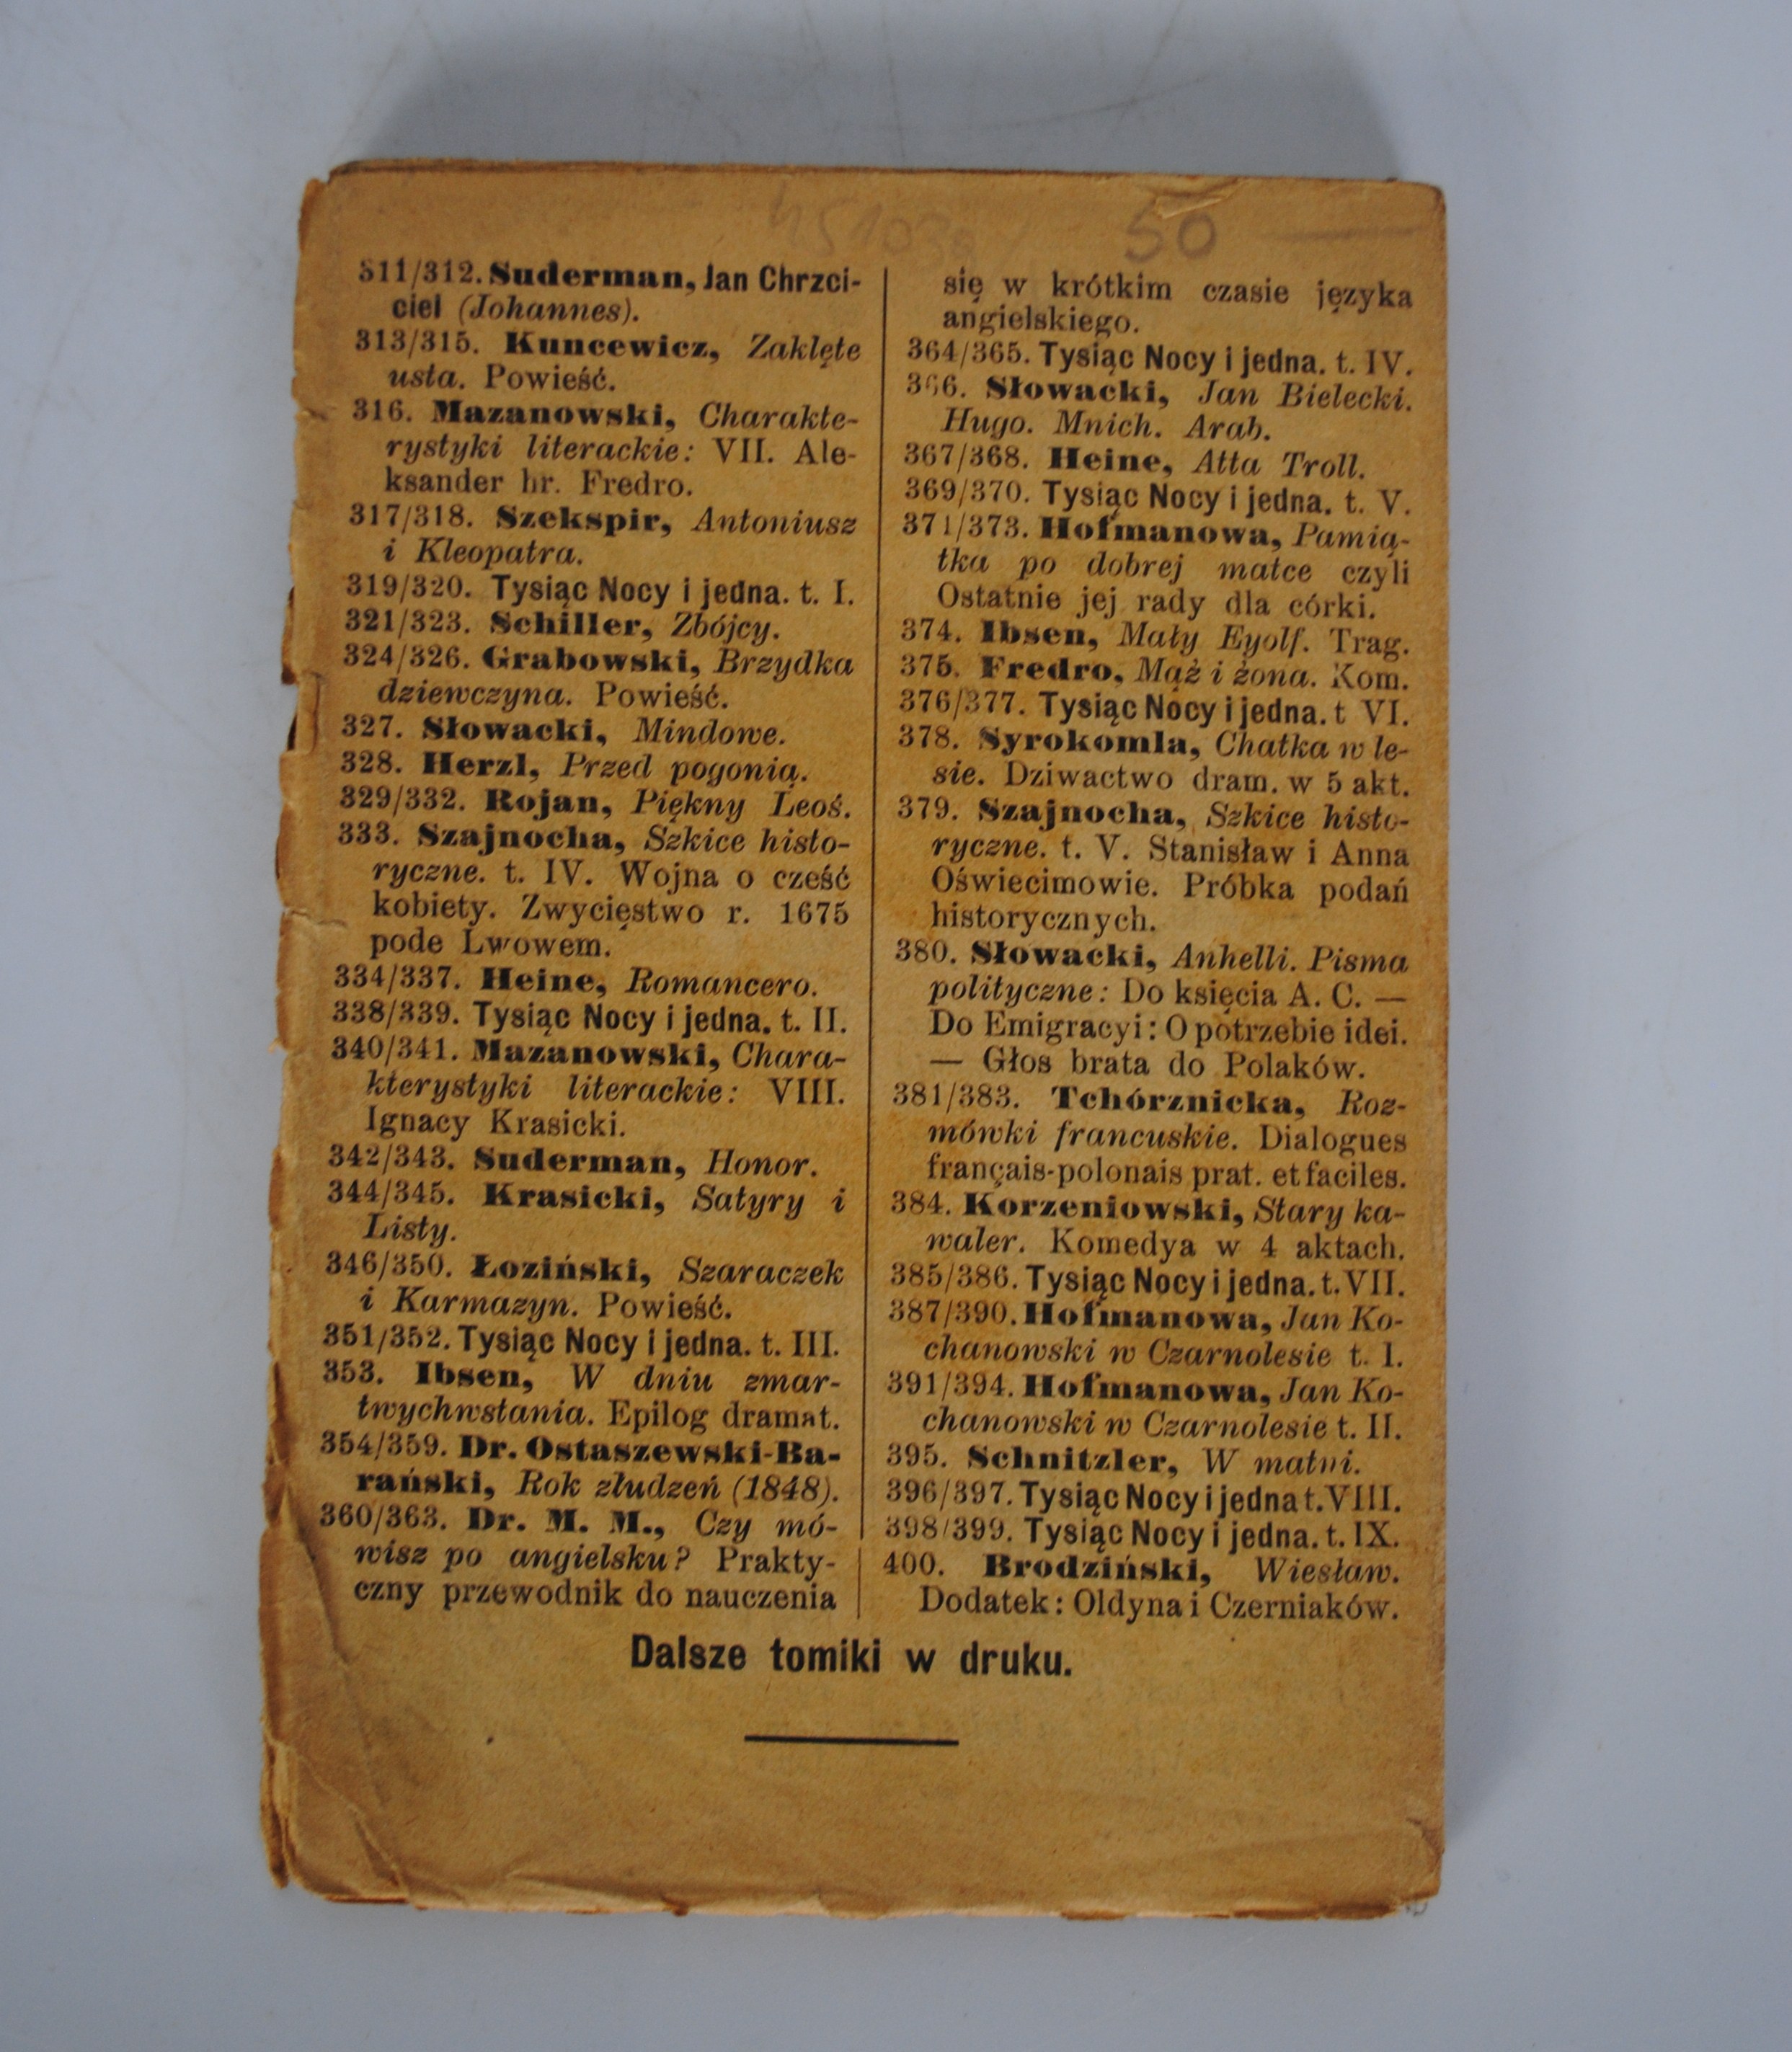 50
311/312. Suderman, Jan Chrzci-
ciel (Johannes).
313/315. Kuncewicz, Zaklęte
usta. Powieść.
316. Mazanowski, Charakte-
rystyki literackie: VII. Ale-
ksander hr. Fredro.
317/318. Szekspir, Antoniusz
i Kleopatra.
319/320. Tysiąc Nocy i jedna. t. I.
321/323. Schiller, Zbójcy.
324/326. Grabowski, Brzydka
dziewczyna. Powieść.
327. Słowacki, Mindowe.
328. Herzl, Przed pogonią.
329/332. Rojan, Piękny Leoś.
333. Szajnocha, Szkice histo-
ryczne. t. IV. Wojna o cześć
kobiety. Zwycięstwo r. 1675
pode Lwowem.
334/337. Heine, Romancero.
338/339. Tysiąc Nocy i jedna. t. II.
340/341. Mazanowski, Chara-
kterystyki literackie: VIII.
Ignacy Krasicki.
342/343. Suderman, Honor.
344/345. Krasicki, Satyry i
Listy.
346/350. Łoziński, Szaraczek
i Karmazyn. Powieść.
351/352. Tysiąc Nocy i jedna. t. III.
353. Ibsen, W dniu zmar-
twychwstania. Epilog dramat.
354/359. Dr. Ostaszewski-Ba-
rański, Rok złudzeń (1848).
360/363. Dr. M. M., Czy mó-
wisz po angielsku? Prakty-
czny przewodnik do nauczenia
się w krótkim czasie języka
angielskiego.
364/365. Tysiąc Nocy i jedna. t. IV.
366. Słowacki, Jan Bielecki.
Hugo. Mnich. Arab.
367/368. Heine, Atta Troll.
369/370. Tysiąc Nocy i jedna. t. V.
371/373. Hofmanowa, Pamią-
tka po dobrej matce czyli
Ostatnie jej rady dla córki.
374. Ibsen, Mały Eyolf. Trag.
375. Fredro, Mąż i żona. Kom.
376/377. Tysiąc Nocy i jedna. t VI.
378. Syrokomla, Chatka w le-
sie. Dziwactwo dram. w 5 akt.
379. Szajnocha, Szkice histo-
ryczne. t. V. Stanisław i Anna
Oświecimowie. Próbka podań
historycznych.
380. Słowacki, Anhelli. Pisma
polityczne: Do księcia A. C. —
Do Emigracyi: O potrzebie idei.
— Głos brata do Polaków.
381/383. Tchórznicka, Roz-
mówki francuskie. Dialogues
français-polonais prat. et faciles.
384. Korzeniowski, Stary ka-
waler. Komedya w 4 aktach.
385/386. Tysiąc Nocy i jedna. t. VII.
387/390. Hofmanowa, Jan Ko-
chanowski w Czarnolesie t. I.
391/394. Hofmanowa, Jan Ko-
chanowski w Czarnolesie t. II.
395. Schnitzler, W matni.
396/397. Tysiąc Nocy i jedna t. VIII.
398/399. Tysiąc Nocy i jedna. t. IX.
400. Brodziński, Wiesław.
Dodatek: Oldyna i Czerniaków.
Dalsze tomiki w druku.